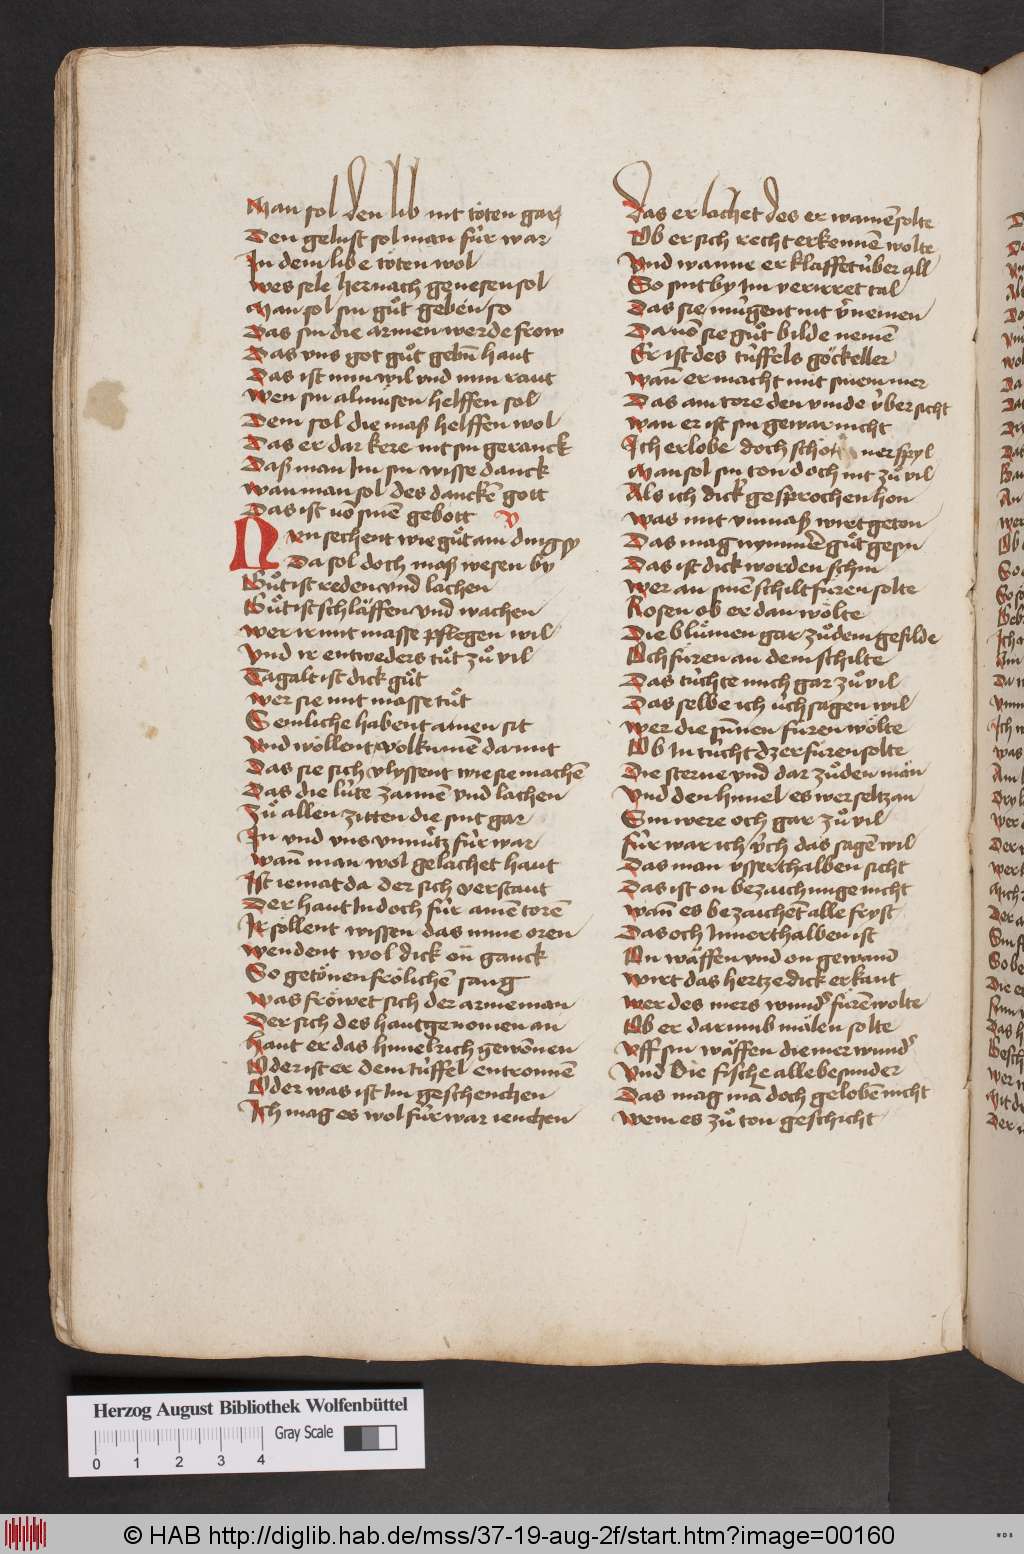 Man sol den lib nit töten gar
Den gelust sol man für war
In dem libe töten wol
Wes sele hernach genesen sol
Man sol sin gůt geben so
Das sin die armen werde frow
Das vns got gůt gebn̄ haut
Das ist min wil vnd min raut
Wen sin almůsen helffen sol
Dem sol die maß helffen wol
Das er dar kere nit sin geranck
Daß man Im sin wisse danck
Wan man sol des danckē gott
Das ist vō sinē gebott
Nvn sechent wie gůt ain ding sy
Da sol doch maß wesen by
Gůt ist reden vnd lachen
Gůt ist schlaͤffen vnd wachen
Wer ir mit masse pflegen wil
Vnd ir entweders tůt zů vil
Tagalt ist dick gůt
Wer sie mit masse tůt
Semliche habent ainen sit
Vnd wöllent wol kumē da mit
Das sie sich vlyssent wie sie machē
Das die lüte zannē vnd lachen
Zů allen zitten die sint gar
In vnd vns vnnütz für war
Wañ man wol gelachet haut
Ist iemat da der sich verstaut
Der haut In doch für ainē torē
Ir söllent wissen das mine oren
Wendent wol dick on ganck
So getönen frölichē sang
Was fröwet sich der arme man
Der sich des haut genomen an
Haut er das himelrich gewōnen
Oder ist er dem tüffel entronnē
Oder was ist Im geschenchen
Ich mag es wol für war ienchen
Das er lachet des er wainē solte
Ob er sich recht erkennē wolte
Vnd wanne er klaffet über all
So sint by Im verirret tal
Das sie mügent nit v̄nemen
Da vō sie gůt bilde nemē
Er ist des tüffels göckeller
Wañ er macht mit sinem mer
Das ain tore den vinde übersicht
Wan er ist sin gewar nicht
Ich erlobe doch schö ner spyl
Man sol sin ton doch nit zů vil
Als ich dick gesprochen hon
Was mit vnmaß wirt geton
Das mag nymmē gůt gesin
Das ist dick worden schin
Wer an sinē schilt fůren solte
Rosen ob er dan wölte
Die blůmen gar zů dem gefilde
Och fůren an dem schilte
Das tüchte mich gar zů vil
Das selbe ich üch sagen wil
Wer die sūnen fůren wölte
Ob In tücht dz er fůren solte
Die sterne vnd dar zů den man
Vnd den himel es wer seltzan
Sin were och gar zů vil
Für war ich üch das sagē wil
Das man vsserthalben sicht
Das ist on bezaichnige nicht
Wañ es bezaichēt alle fryst
Das och Innerthalben ist
On waͤffen vnd on gewand
Wirt das hertze dick erkant
Wer des mers wund fůrē wolte
Ob er darumb mälen solte
Vff sin waͤffen die mer wund
Vnd Die fische alle besunder
Das mag mā doch gelobē nicht
Wem es zů ton geschicht
Herzog August Bibliothek Wolfenbüttel
Gray Scale
0 1 2 3 4
© HAB http://diglib.hab.de/mss/37-19-aug-2f/start.htm?image=00160